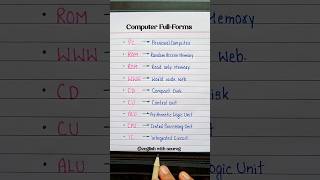 Computer Full-Forms
PC → Personal Computer
RAM → Random Access Memory
ROM → Read only Memory
WWW → World wide web.
CD → Compact Disk
CU → Control unit
ALU → Arithmetic Logic Unit
CPU → Central Processing Unit
IC → Integrated Circuit
@english with saurog
ROM
Memory
WWW
Web.
CD
Disk
CU
ALU
Logic Unit